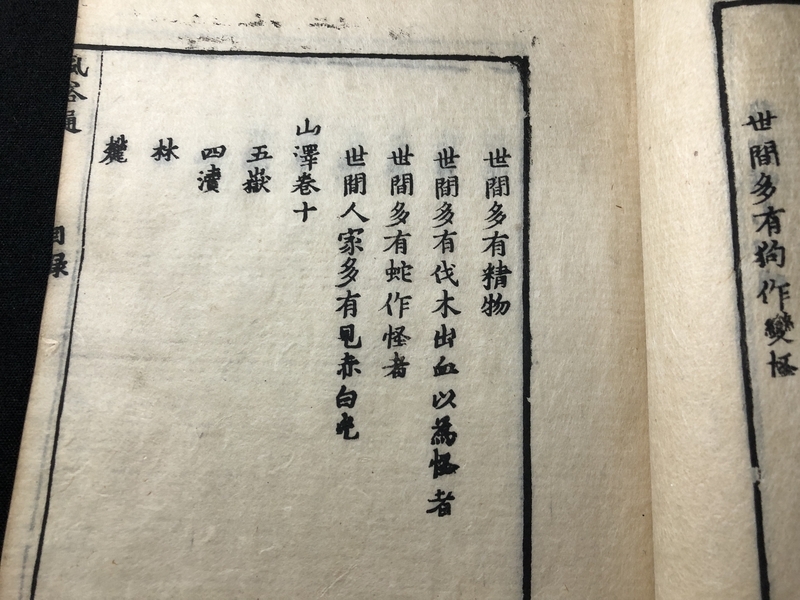 世間多有狗作變怪
世間多有精物
世間多有伐木出血以為怪者
世間多有蛇作怪者
世間人家多有見赤白光
山澤卷十
五嶽
四瀆
林
麓
風俗通
目录